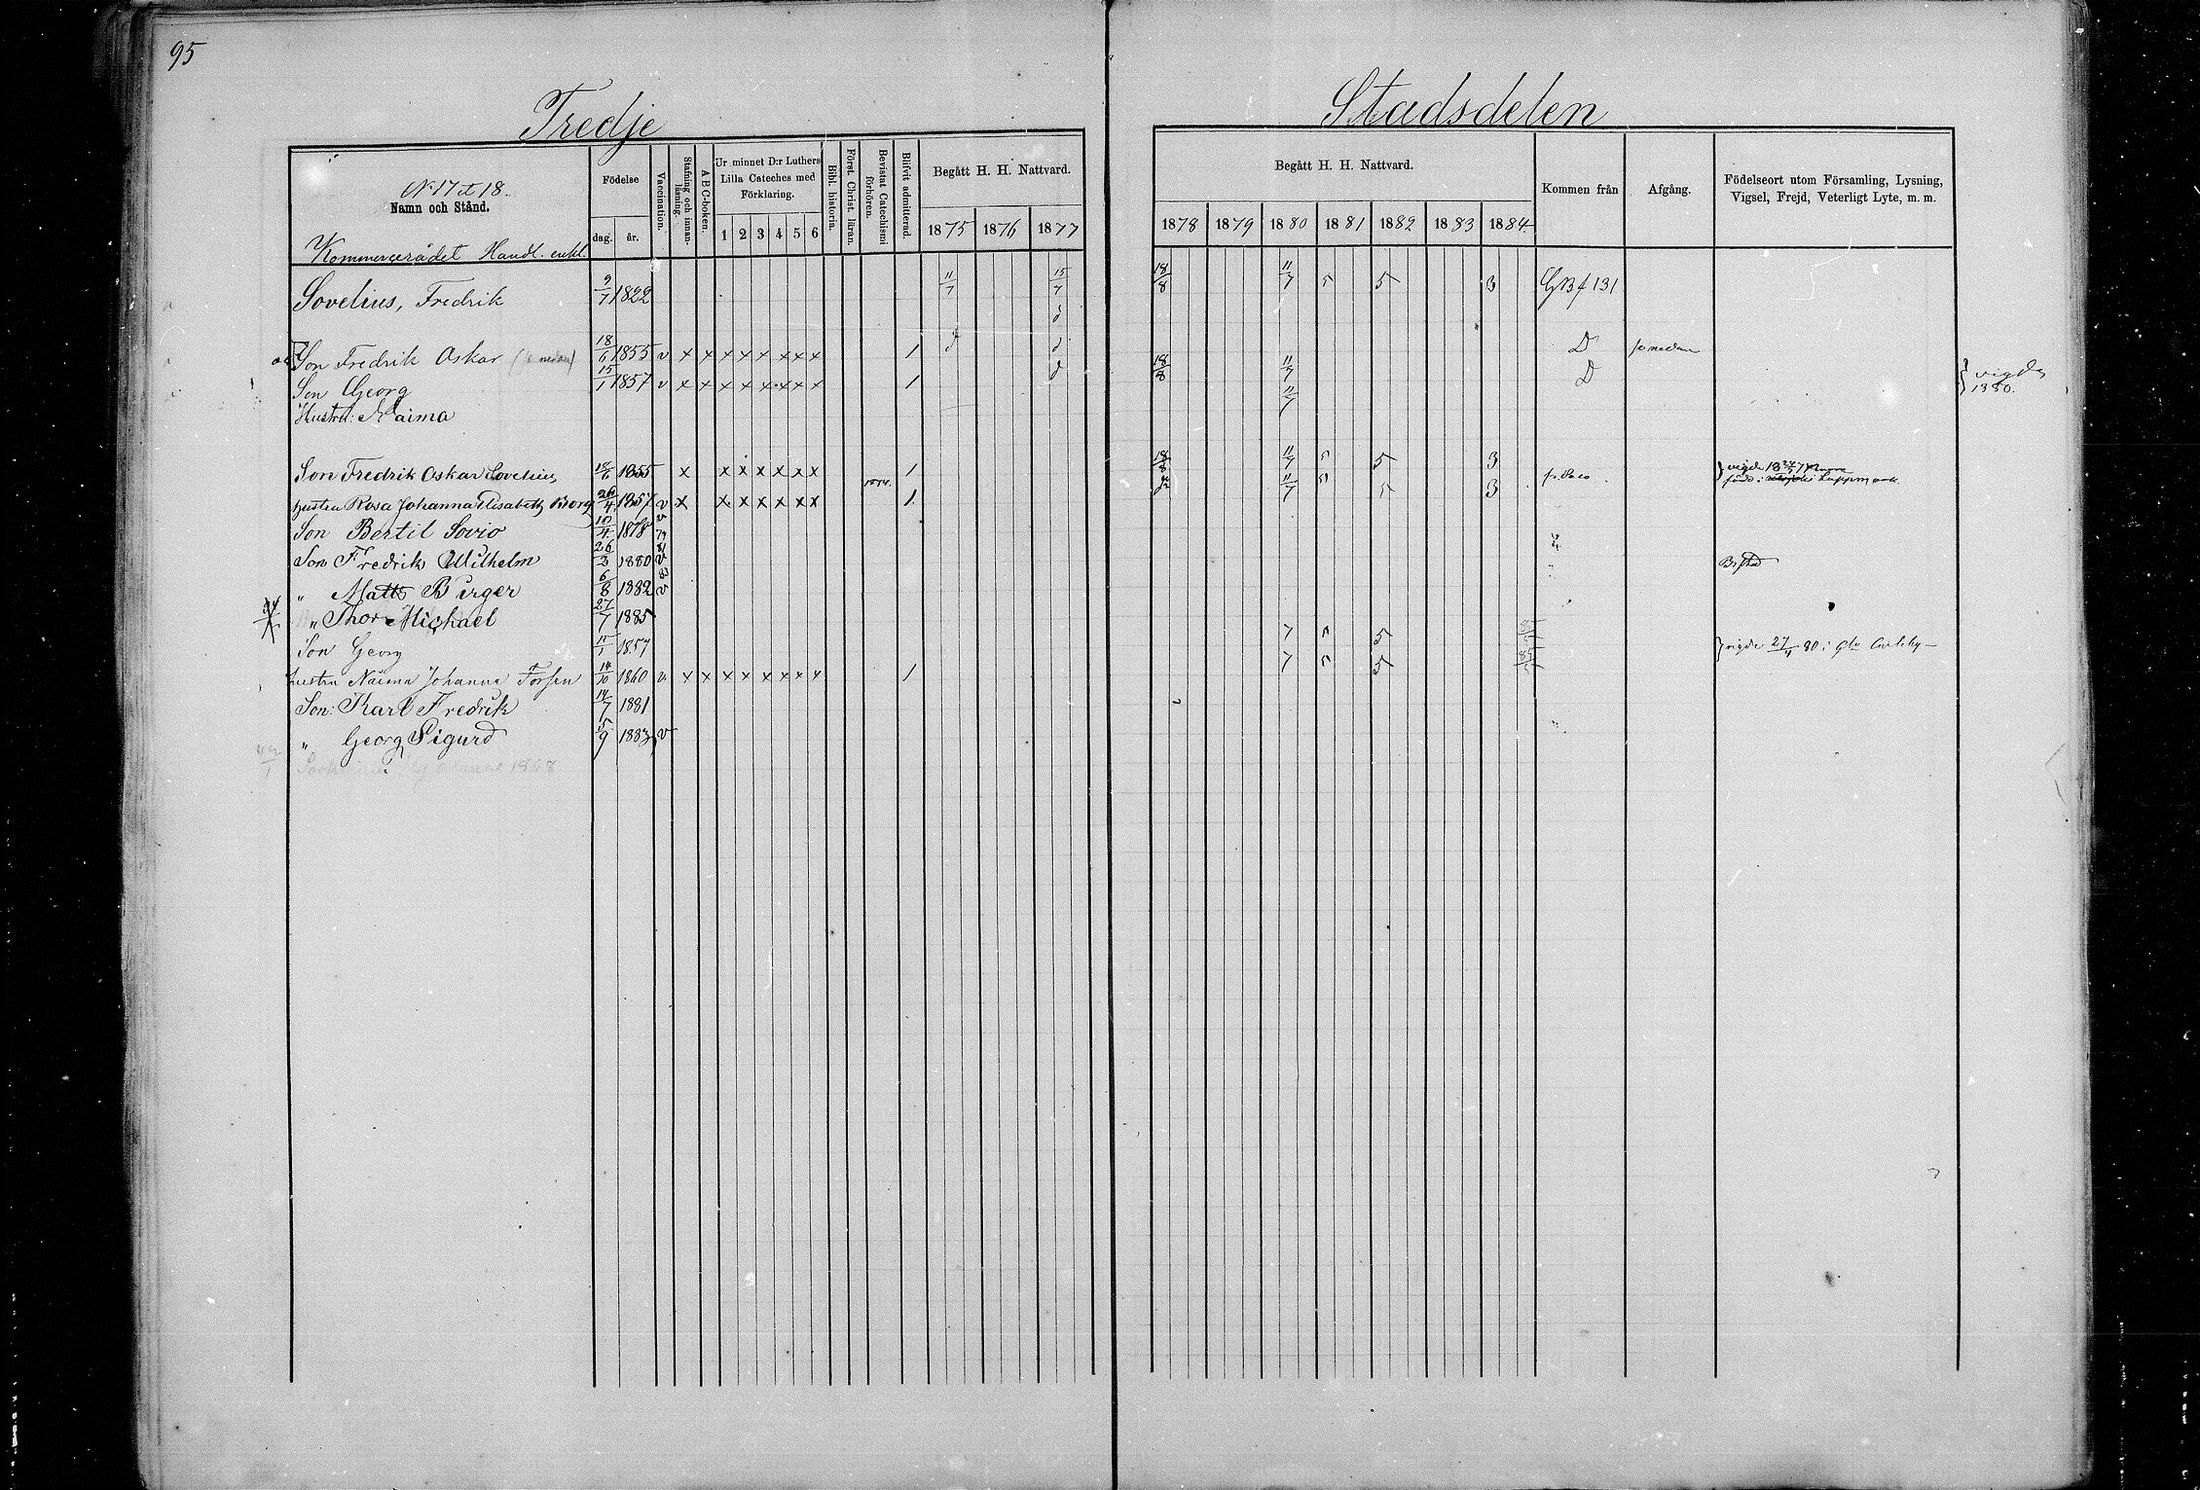 95
Tredje Stadsdelen
No 17 et 18.
Namn och Stånd.
Födelse
dag. år.
Vaccination.
Stafning och innanläsning.
A B C-boken.
Ur minnet D:r Luthers Lilla Cateches med Förklaring.
1 2 3 4 5 6
Bibl. historia.
Först. Christ. läran.
Bevistat Catechismi förhören.
Blifvit admitterad.
Begått H. H. Nattvard.
1875 1876 1877
Begått H. H. Nattvard.
1878 1879 1880 1881 1882 1883 1884
Kommen från
Afgång.
Födelseort utom Församling, Lysning, Vigsel, Frejd, Veterligt Lyte, m. m.
Kommerserådet Handl. enkl.
Sovelius, Fredrik 9/7 1822 11/7 15/7 18/8 11/7 5 5 3 GB f 131
Son Fredrik Oskar (se nedan) 18/6 1855 v x x x x x x x x 1 D se nedan
Son Georg 15/1 1857 v x x x x x x x x 1 18/8 11/7 D vigde 1880.
Hustru: Naima 11/7
Son Fredrik Oskar Sovelius 18/6 1855 x x x x x x x 1 18/8 11/7 5 5 3 vigde
hustru Rosa Johanna Elisabeth Borg 26/4 1857 v x x x x x x x 1 11/7 5 5 3 född i Lappmark
Son Bertil Sovio 10/4 1878 v 79
Son Fredrik Wilhelm 26/2 1880 v 81
" Matts Birger 6/8 1882 v 83
" Thor Michael 27/7 1885
Son Georg 15/1 1857 7 5 5 vigde 27/4 80 i Gla Carleby
hustru Naima Johanna Forsen 14/10 1860 v x x x x x x x x 1 7 5 5
Son: Karl Fredrik 14/7 1881
" Georg Sigurd 5/9 1883 v